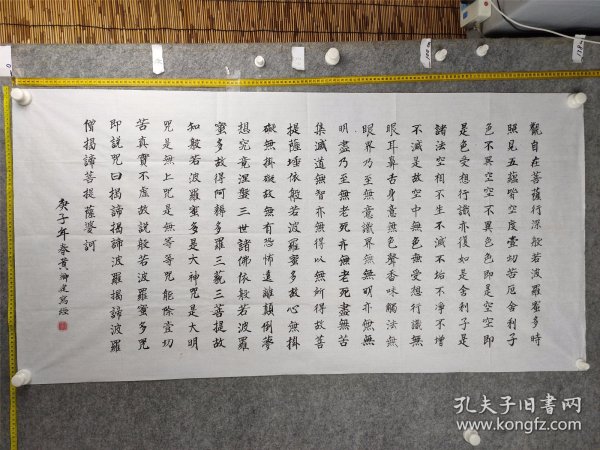 觀自在菩薩行深般若波羅蜜多時
照見五蘊皆空度壹切苦厄舍利子
色不異空空不異色色即是空空即
是色受想行識亦復如是舍利子是
諸法空相不生不滅不垢不淨不增
不減是故空中無色無受想行識無
眼耳鼻舌身意無色聲香味觸法無
眼界乃至無意識界無無明亦無無
明盡乃至無老死亦無老死盡無苦
集滅道無智亦無得以無所得故菩
提薩埵依般若波羅蜜多故心無掛
礙無掛礙故無有恐怖遠離顛倒夢
想究竟涅槃三世諸佛依般若波羅
蜜多故得阿耨多羅三藐三菩提故
知般若波羅蜜多是大神咒是大明
咒是無上咒是無等等咒能除壹切
苦真實不虛故說般若波羅蜜多咒
即說咒曰揭諦揭諦波羅揭諦波羅
僧揭諦菩提薩婆訶
庚子年春黃寫經
孔夫子旧书网
kongfz.com